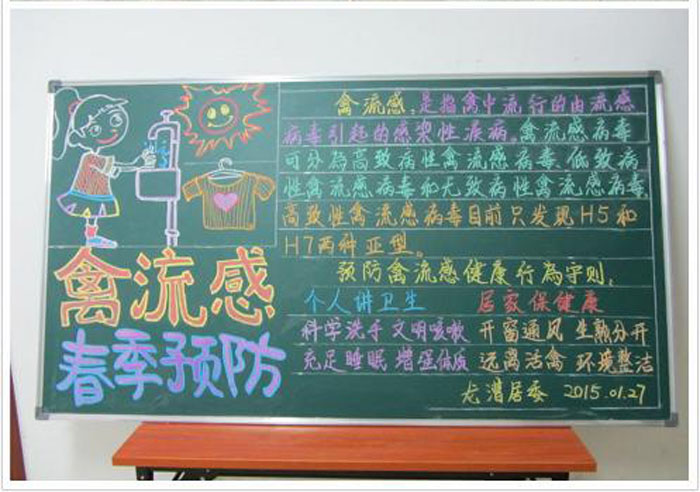 禽流感
春季预防
禽流感，是指禽中流行的由流感
病毒引起的感染性疾病。禽流感病毒
可分為高致病性禽流感病毒、低致病
性禽流感病毒和无致病性禽流感病毒。
高致性禽流感病毒目前只发现H5和
H7两种亚型。
预防禽流感健康行為守则。
个人讲卫生 居家保健康
科学洗手 文明咳嗽 开窗通风 生熟分开
充足睡眠 增强体质 远离活禽 环境整洁
龙潜居委 2015.01.27